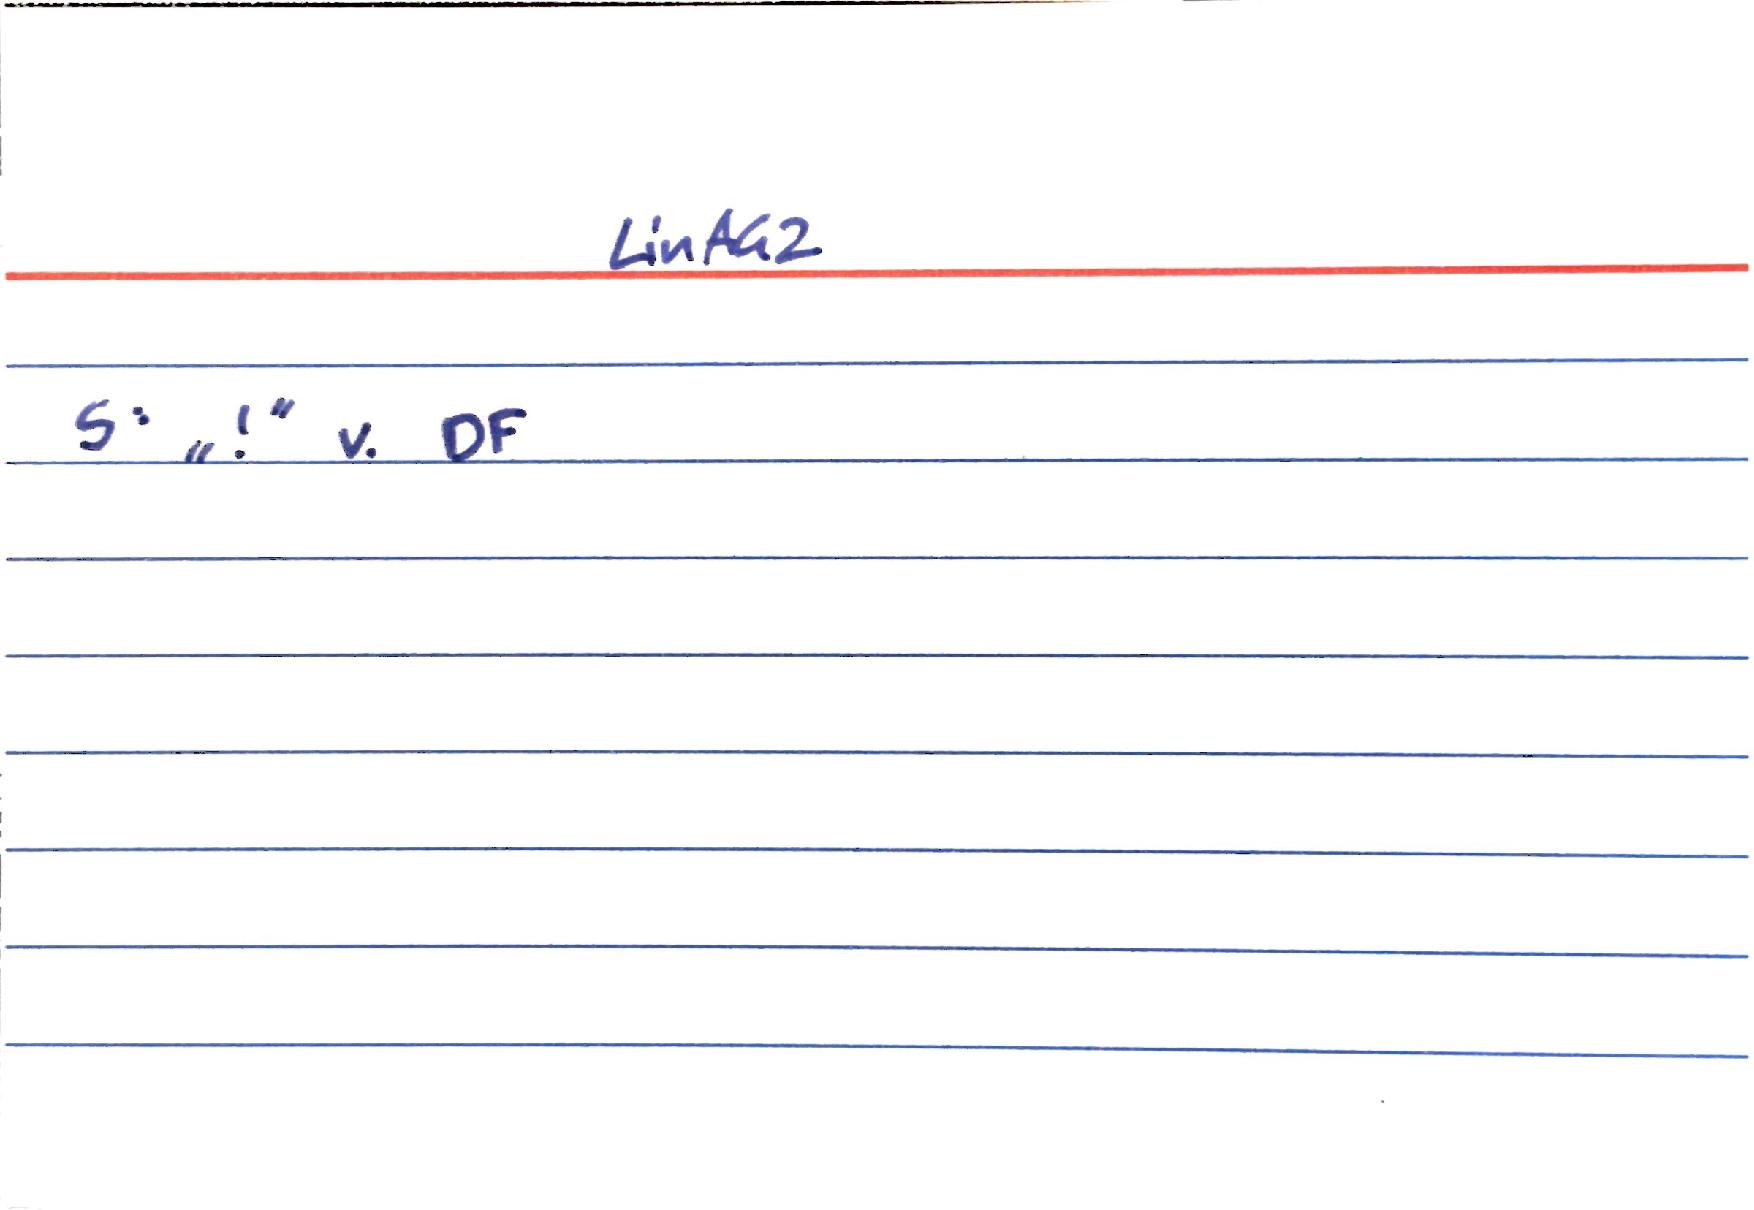 LinAG2
S: „!“ v. DF